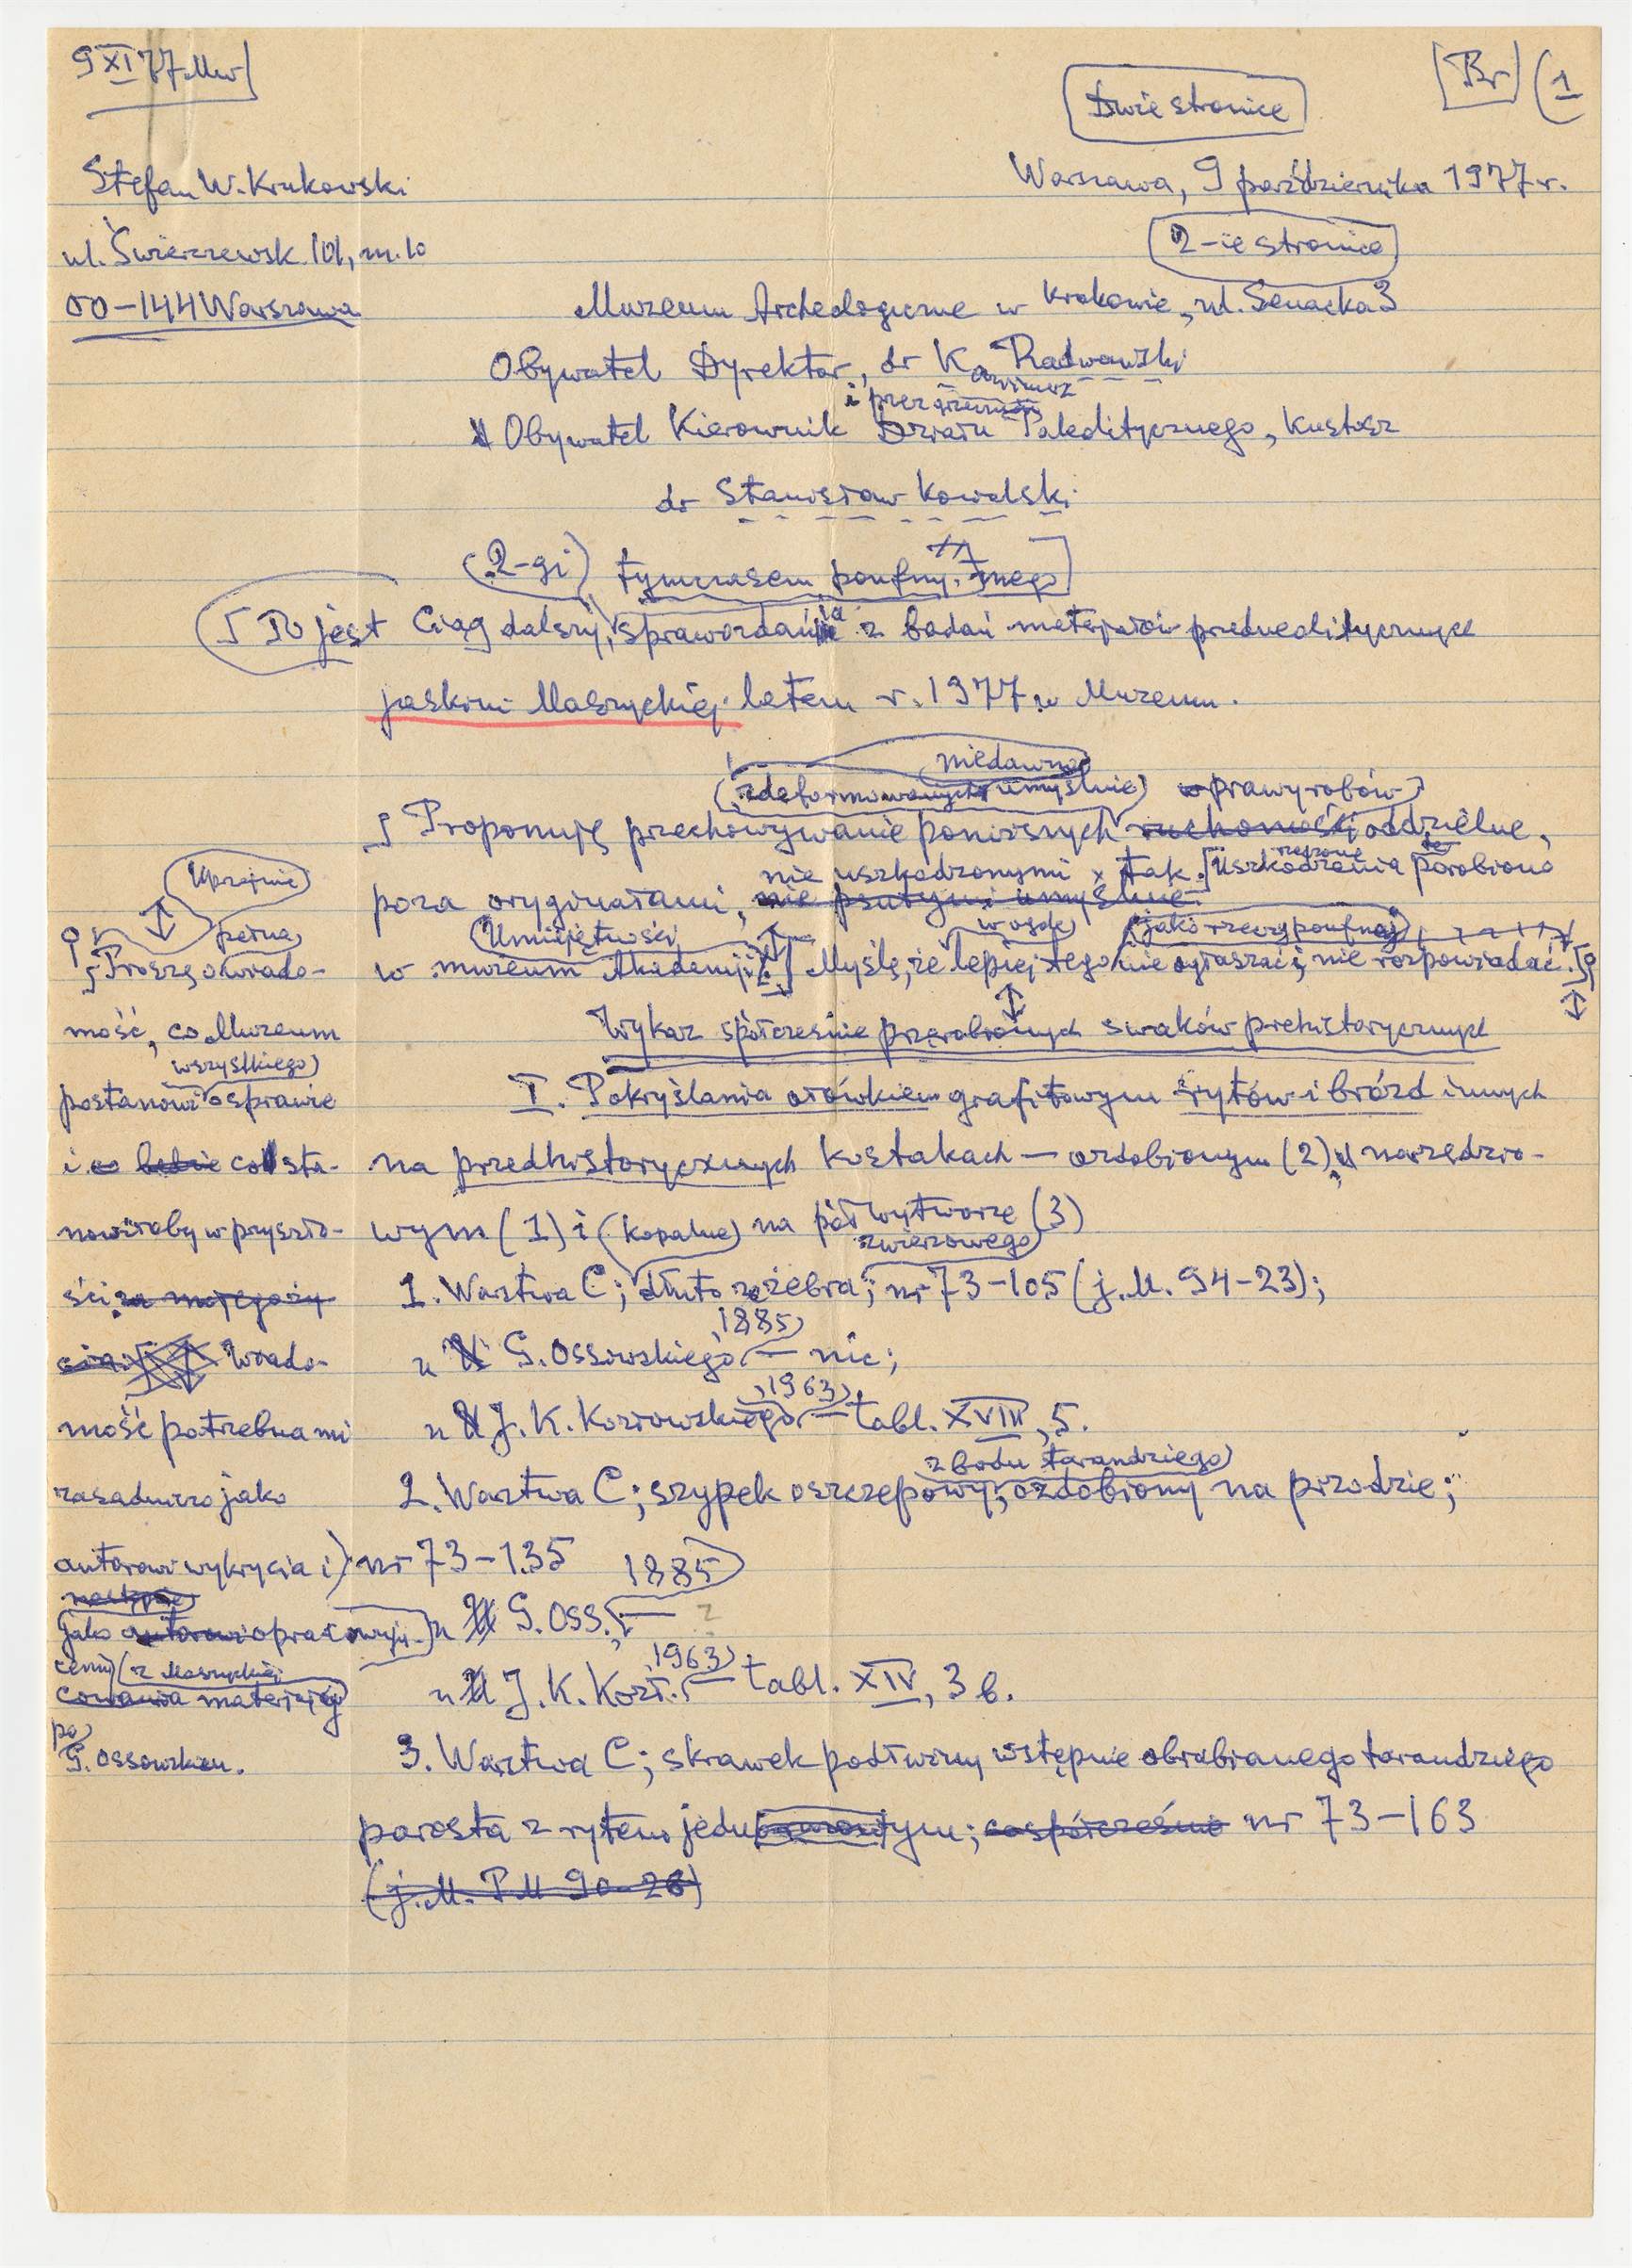 9 XI 77 Mw
Br (1
Dwie stronice
Stefan W. Krukowski
Warszawa, 9 października 1977 r.
ul. Świerczewsk. 101, m. 10
2-ie stronice
00-144 Warszawa
Muzeum Archeologiczne w Krakowie, ul. Senacka 3
Obywatel Dyrektor, dr Kazimierz Radwański
i
Obywatel Kierownik Działu Paleolitycznego, kustosz
dr Stanisław Kowalski
(2-gi) tymczasem poufny
To jest Ciąg dalszy sprawozdania z badań materjałów predneolitycznych
jaskini Maszyckiej latem r. 1977 w Muzeum.
niedawno
(zdeformowanych umyślnie) prawyrobów
Proponuję przechowywanie poniższych ruchomości oddzielne,
nie uszkodzonymi tak. Uszkodzenia porobiono
poza oryginałami, nie psutymi umyślnie
(Umiejętności) w ogóle (jako rzeczy poufnej)
w muzeum Akademji. Myślę, że lepiej tego nie ogłaszać i nie rozpowiadać.
Wykaz spółcześnie przerobionych swaków prehistorycznych
I. Pokryślania ołówkiem grafitowym rytów i brózd innych
na przedhistorycznych kostakach — ozdobionym (2), narzędzio-
wym (1) i (kopalne) na półwytworze (3)
zwierzowego
1. Warstwa C; dłuto z żebra; nr 73-105 (j. M. 94-23);
1885
u G. Ossowskiego — nic;
1963
u J. K. Kozłowskiego — tabl. XVIII, 5.
z bodu tarandziego
2. Warstwa C; szypek oszczepowy, ozdobiony na przodzie;
nr 73-135
1885
u G. Oss. — ?
1963
u J. K. Kozł. — tabl. XIV, 3 b.
3. Warstwa C; skrawek podłużny wstępnie obrabianego tarandziego
porosta z rytem jednym; nr 73-163
(j. M. PM 90-28)
Uprzejmie
pełną
Proszę o wiado-
mość, co Muzeum
wszystkiego
postanowi o sprawie
i co będzie co sta-
nowiłoby w przyszło-
ści za mojego ży
cia. Wiado-
mość potrzebna mi
zasadniczo jako
autorowi wykrycia i
jako autorowi opracowuj-
cemu (z Maszyckiej
cowania materjały
po
G. Ossowskim.